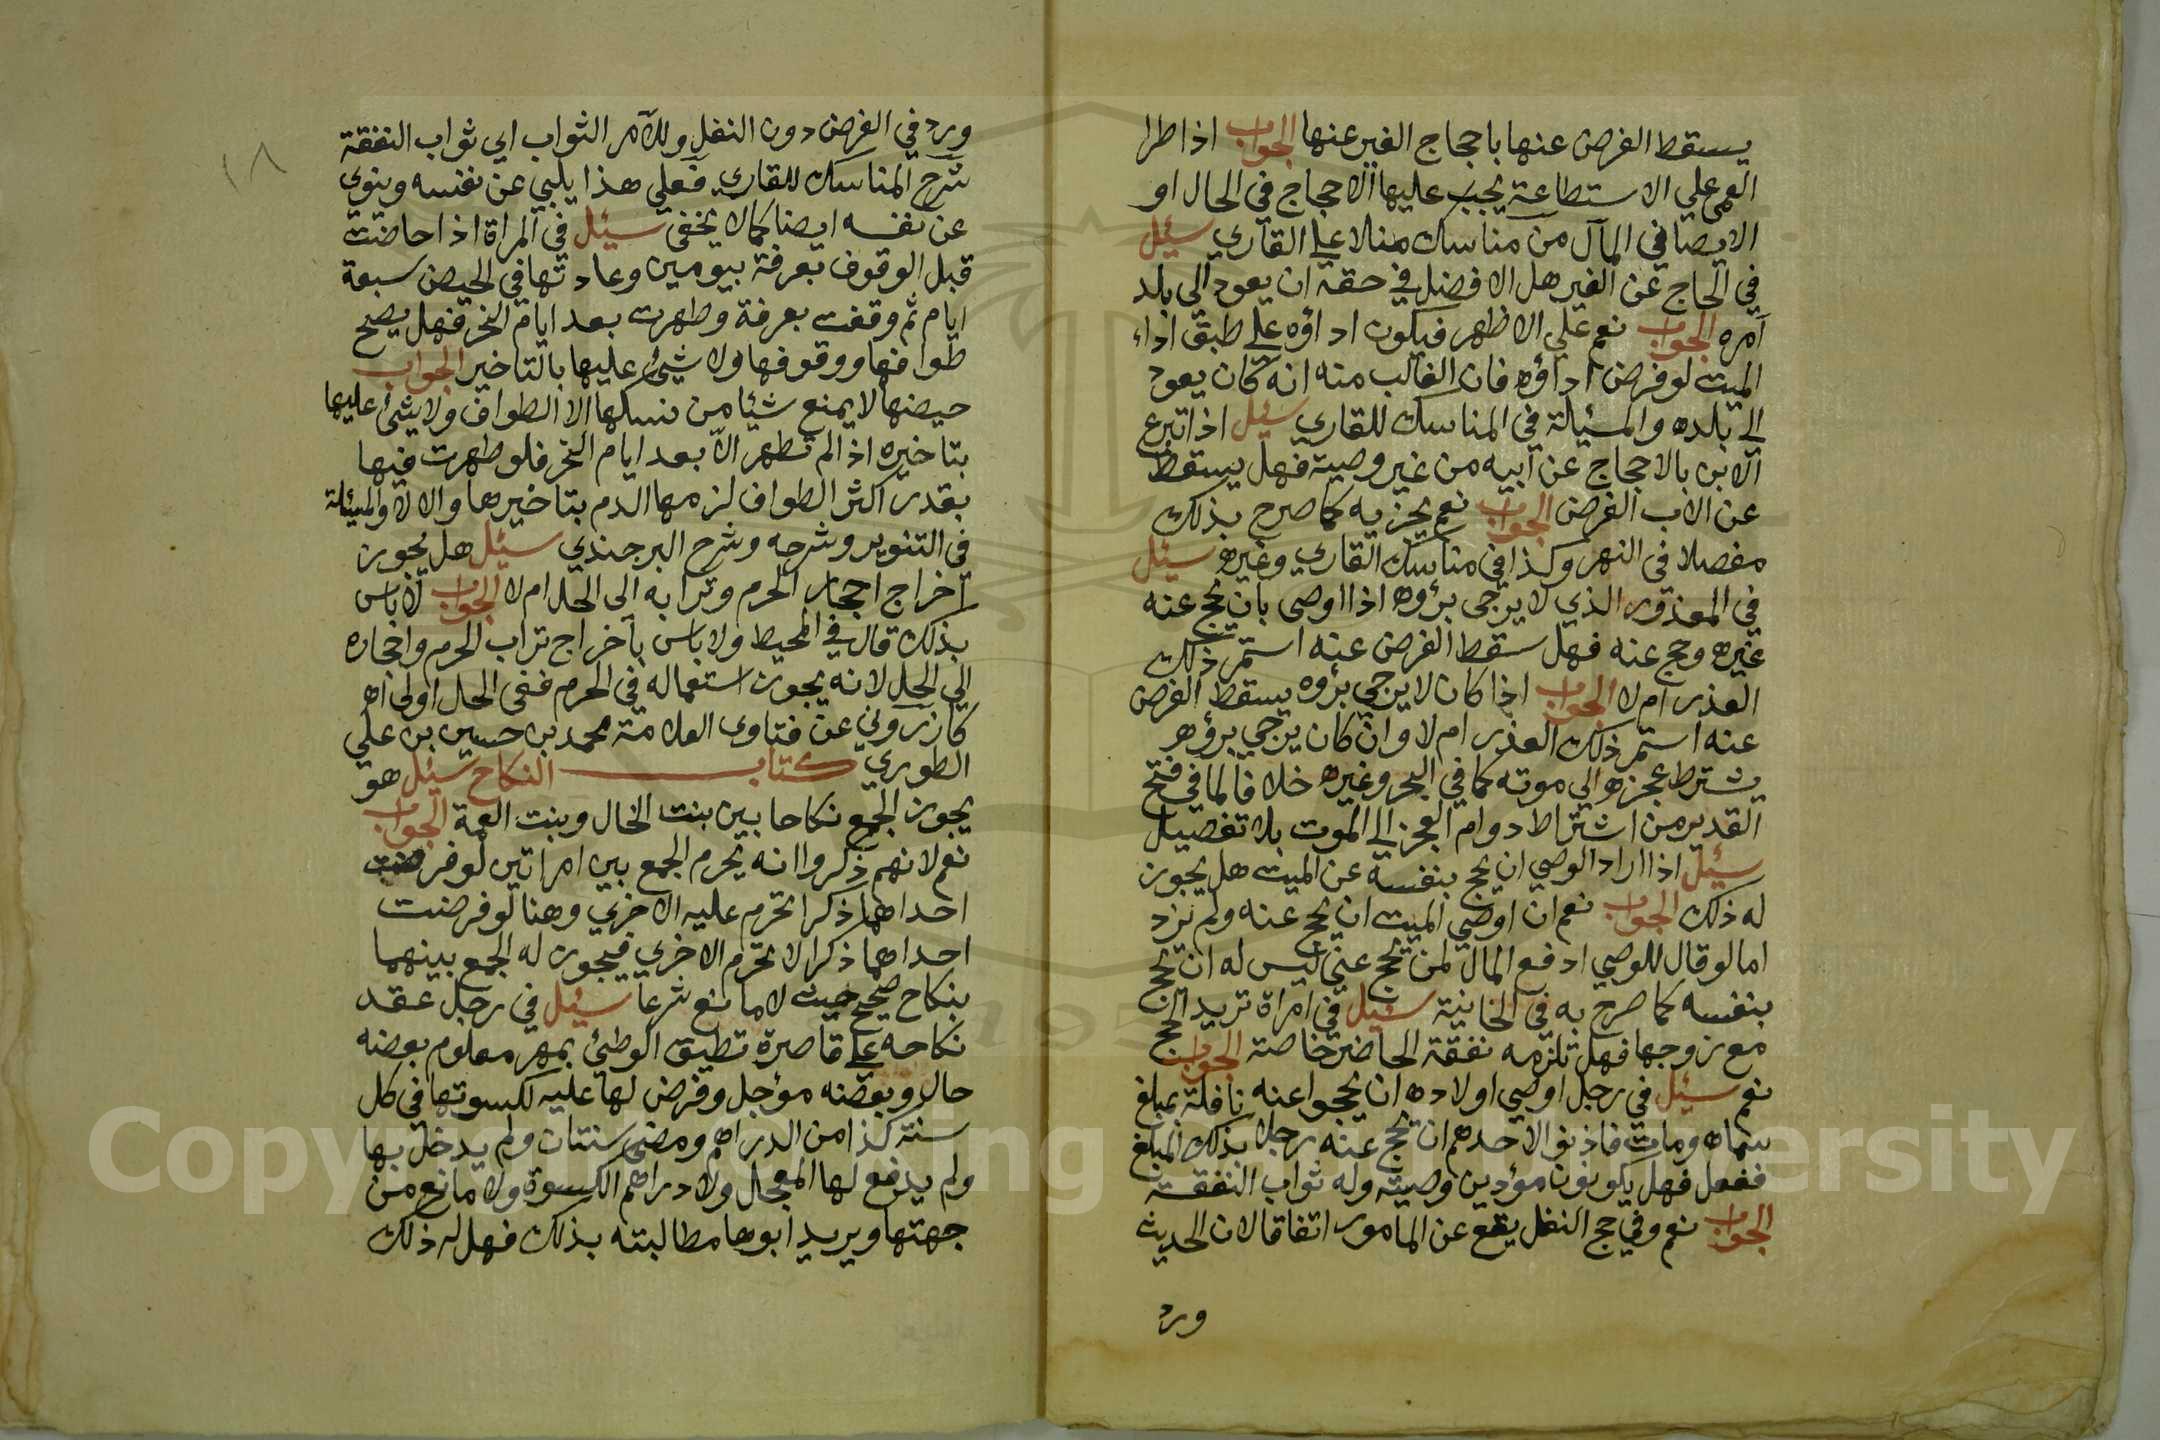 يسقط الفرض عنها باحجاج الغير عنها الجواب اذا طرا
العمى علي الاستطاعة يجب عليها الاحجاج في الحال او
الايصا في المآل من مناسك منلا علي القاري سئيل
في الحاج عن الغير هل الافضل في حقه ان يعود الي بلد
آمره الجواب نعم علي الاظهر فيكون اداؤه علي طبق اداء
الميت لو فرض اداؤه فان الغالب منه انه كان يعود
الي بلده والمسئيلة في المناسك للقاري سئيل اذا تبرع
الابن بالاحجاج عن ابيه من غير وصية فهل يسقط
عن الاب الفرض الجواب نعم يجزيه كما صرح بذلك
مفصلا في النهر وكذا في مناسك القاري وغيره سئيل
في المعذور الذي لا يرجى برؤه اذا اوصى بان يحج عنه
غيره وحج عنه فهل سقط الفرض عنه استمر ذلك
العذر ام لا الجواب اذا كان لا يرجي برؤه يسقط الفرض
عنه استمر ذلك العذر ام لا وان كان يرجي برؤه
يشترط عجزه الي موته كما في البحر وغيره خلافا لما في فتح
القدير من اشتراط دوام العجز الي الموت بلا تفصيل
سئيل اذا اراد الوصي ان يحج بنفسه عن الميت هل يجوز
له ذلك الجواب نعم ان اوصي الميت ان يحج عنه ولم يزد
اما لو قال للوصي ادفع المال لمن يحج عني ليس له ان يحج
بنفسه كما صرح به في الخانية سئيل في امراة تريد الحج
مع زوجها فهل تلزمه نفقة الحاضر خاصة الجواب
نعم سئيل في رجل اوصي اولاده ان يحجوا عنه نافلة بمبلغ
سماه ومات فاذنوا لاحدهم ان يحج عنه رجلا بذلك المبلغ
ففعل فهل يكونون مؤدين وصيته وله ثواب النفقة
الجواب نعم وفي حج النفل يقع عن المامور اتفاقا لان الحديث
ورد
١٨
ورد في الفرض دون النفل وللآمر الثواب اي ثواب النفقة
شرح المناسك للقاري فعلي هذا يلبي عن نفسه وينوي
عن نفسه ايضا كما لا يخفى سئيل في المراة اذا حاضت
قبل الوقوف بعرفة بيومين وعادتها في الحيض سبعة
ايام ثم وقفت بعرفة وطهرت بعد ايام النحر فهل يصح
طوافها ووقوفها ولا شيئ عليها بالتاخير الجواب
حيضها لا يمنع شيئا من نسكها الا الطواف ولا شئ عليها
بتاخيره اذا لم تطهر الا بعد ايام النحر فلو طهرت فيها
بقدر اكثر الطواف لزمها الدم بتاخيرها والا لا والمسئلة
في التنوير وشرحه وشرح البرجندي سئيل هل يجوز
اخراج احجار الحرم وترابه الي الحل ام لا الجواب لا باس
بذلك قال في المحيط ولا باس باخراج تراب الحرم واحجاره
الي الحل لانه يجوز استعماله في الحرم ففي الحل اولى اه
كازروني عن فتاوى العلامة محمد بن حسين بن علي
الطوري كتاب النكاح سئيل هو
يجوز الجمع نكاحا بين بنت الخال وبنت العمة الجواب
نعم لانهم ذكروا انه يحرم الجمع بين امراتين لو فرضت
احداهما ذكرا تحرم عليه الاخري وهنا لو فرضت
احداهما ذكرا لا تحرم الاخري فيجوز له الجمع بينهما
بنكاح صحيح حيث لا مانع شرعا سئيل في رجل عقد
نكاحه علي قاصرة تطيق الوطئ بمهر معلوم بعضه
حال وبعضه مؤجل وفرض لها عليه لكسوتها في كل
سنة كذا من الدراهم ومضى سنتان ولم يدخل بها
ولم يدفع لها المعجل ولا دراهم الكسوة ولا مانع من
جهتها ويريد ابوها مطالبته بذلك فهل له ذلك